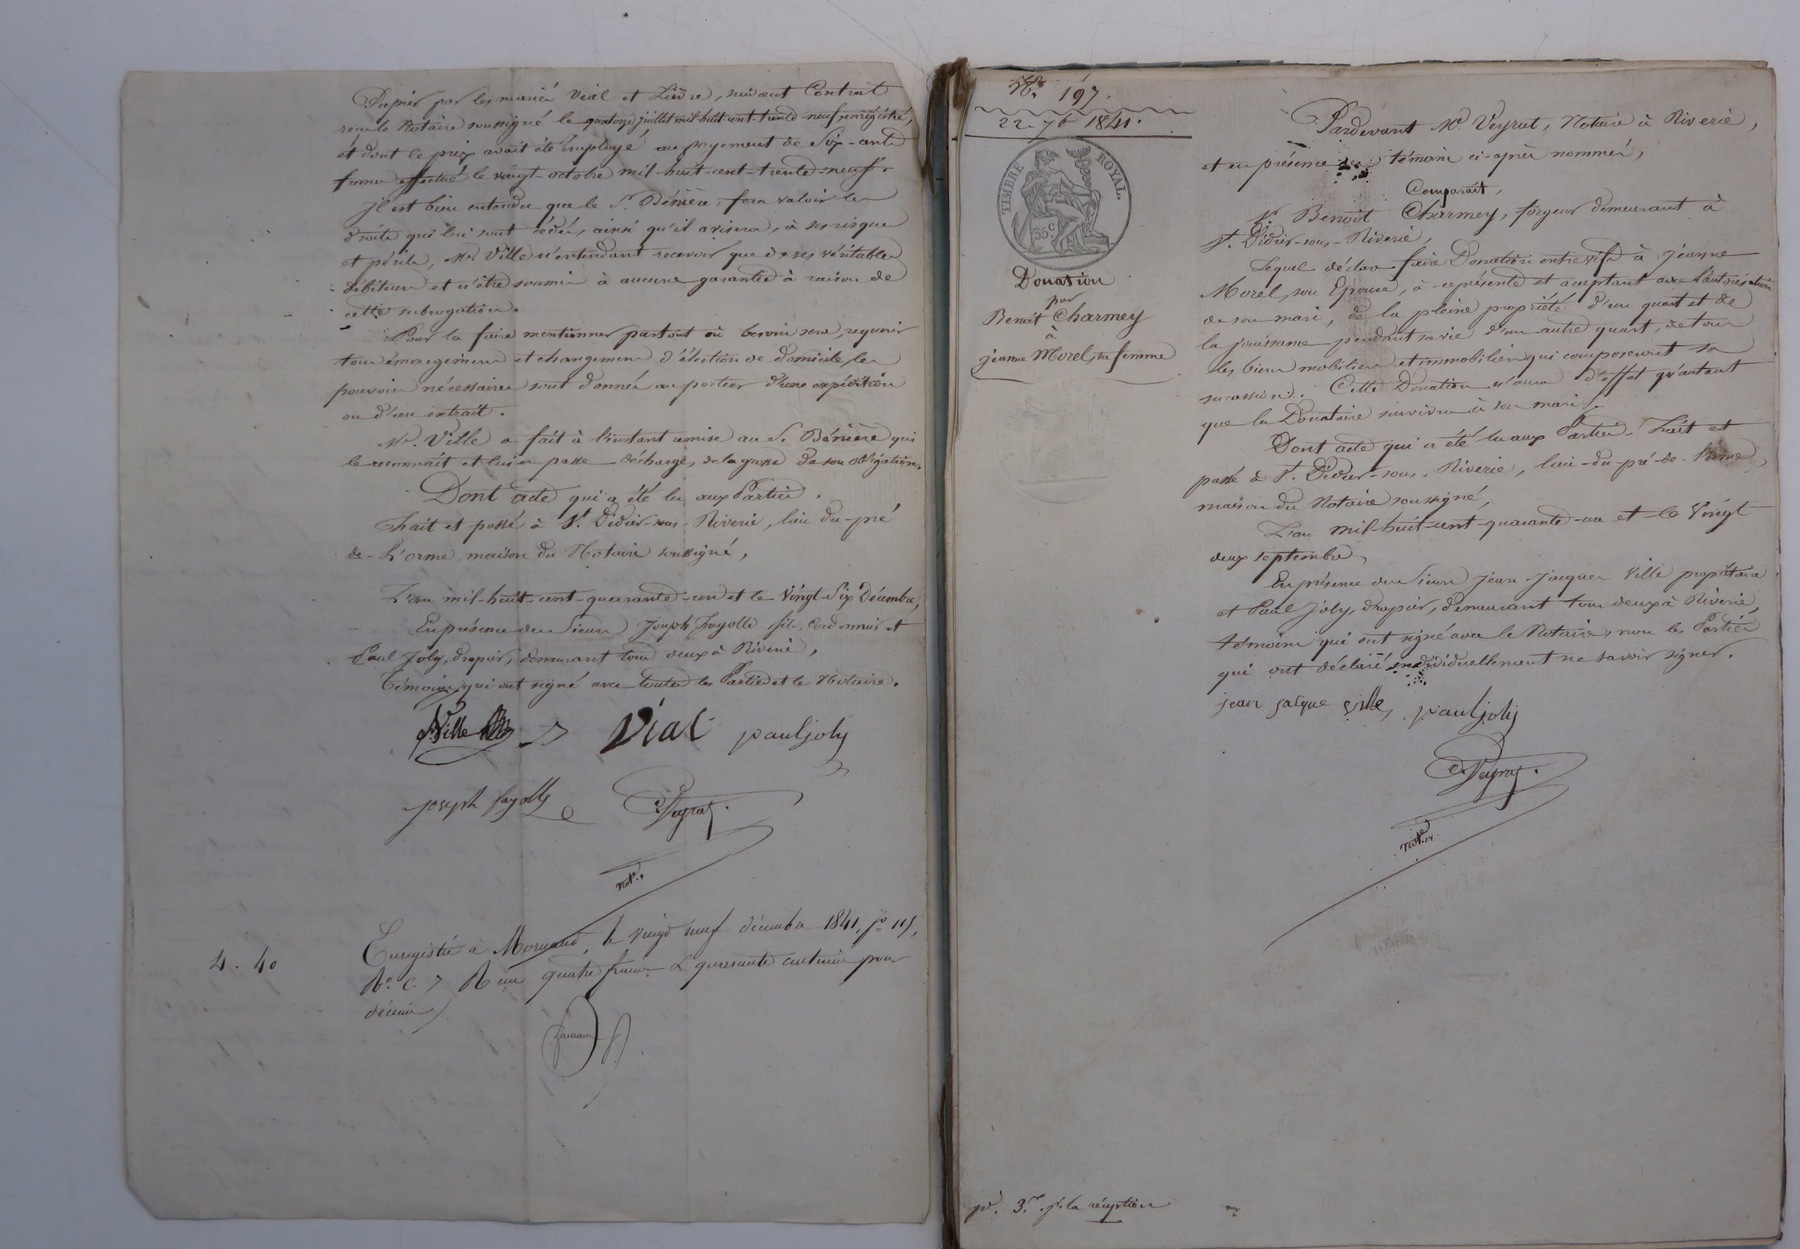 Dupuis par les mariés Vial et Lièvre, suivant Contrat
reçu le Notaire soussigné le quatorze juillet mil-huit-cent-trente-neuf, enregistré,
et dont le prix avait été employé au payement de Six-cents
francs effectué le vingt-octobre mil-huit-cent-trente-neuf.
Il est bien entendu que le Sr. Bénière, fera valoir les
droits qui lui sont cédés, ainsi qu'il avisera, à ses risques
et périls, Mr. Ville n'entendant recevoir que de ses véritables
débiteurs et n'être soumis à aucune garantie à raison de
cette subrogation.
Pour la faire mentionner partout où besoin sera, requérir
tous émargemens et changemens d'élection de domicile, les
pouvoirs nécessaires sont donnés au porteur d'une expédition
ou d'un extrait.
Mr. Ville a fait à l'instant remise au Sr. Bénière qui
le reconnaît et lui en passe décharge, de la grosse de son obligation.
Dont acte qui a été lu aux Parties.
Fait et passé à St. Didier-sous-Riverie, lieu du-pré
de-L'orme, maison du Notaire soussigné,
L'an mil-huit-cent-quarante-un et le Vingt-Six Décembre,
En présence des Sieurs Joseph Fayolle fils, Cordonnier et
Paul Joly, drapier, demeurant tous deux à Riverie,
Témoins qui ont signé avec toutes les Parties et le Notaire.
Ville Vial paul joly
joseph fayolle Veyrat
Not.
4. 40
Enregistré à Mornant, le vingt neuf décembre 1841, fo. 115,
Ro. C. 7 Reçu quatre francs & quarante centimes pour
décime
No. 197.
22. 7b. 1841.
TIMBRE ROYAL.
35 C
Donation
par
Benoît Charmey
à
jeanne Morel, sa femme
Pardevant Me. Veyrat, Notaire à Riverie,
et en présence des témoins ci-après nommés,
Comparaît,
Sr. Benoît Charmey, forgeur demeurant à
St. Didier-sous-Riverie,
Lequel déclare faire Donation entre vifs à jeanne
Morel, son Epouse, à ce présente et acceptant avec l'autorisation
de son mari, de la pleine propriété d'un quart et de
la jouissance pendant sa vie d'un autre quart, de tous
les biens mobiliers et immobiliers qui composeront sa
succession. Cette Donation n'aura d'effet qu'autant
que la Donataire survivra à son mari.
Dont acte qui a été lu aux Parties. Fait et
passé à St. Didier-sous-Riverie, lieu-du-pré-de-l'orme,
maison du Notaire soussigné,
L'an mil-huit-cent-quarante-un et le Vingt
deux septembre,
En présence des Sieurs jean-jacques Ville propriétaire
et Paul Joly, drapier, demeurant tous deux à Riverie,
témoins qui ont signé avec le Notaire, non les Parties
qui ont déclaré individuellement ne savoir signer.
jean jacque ville, paul joly
Veyrat
Not.
3. la réception